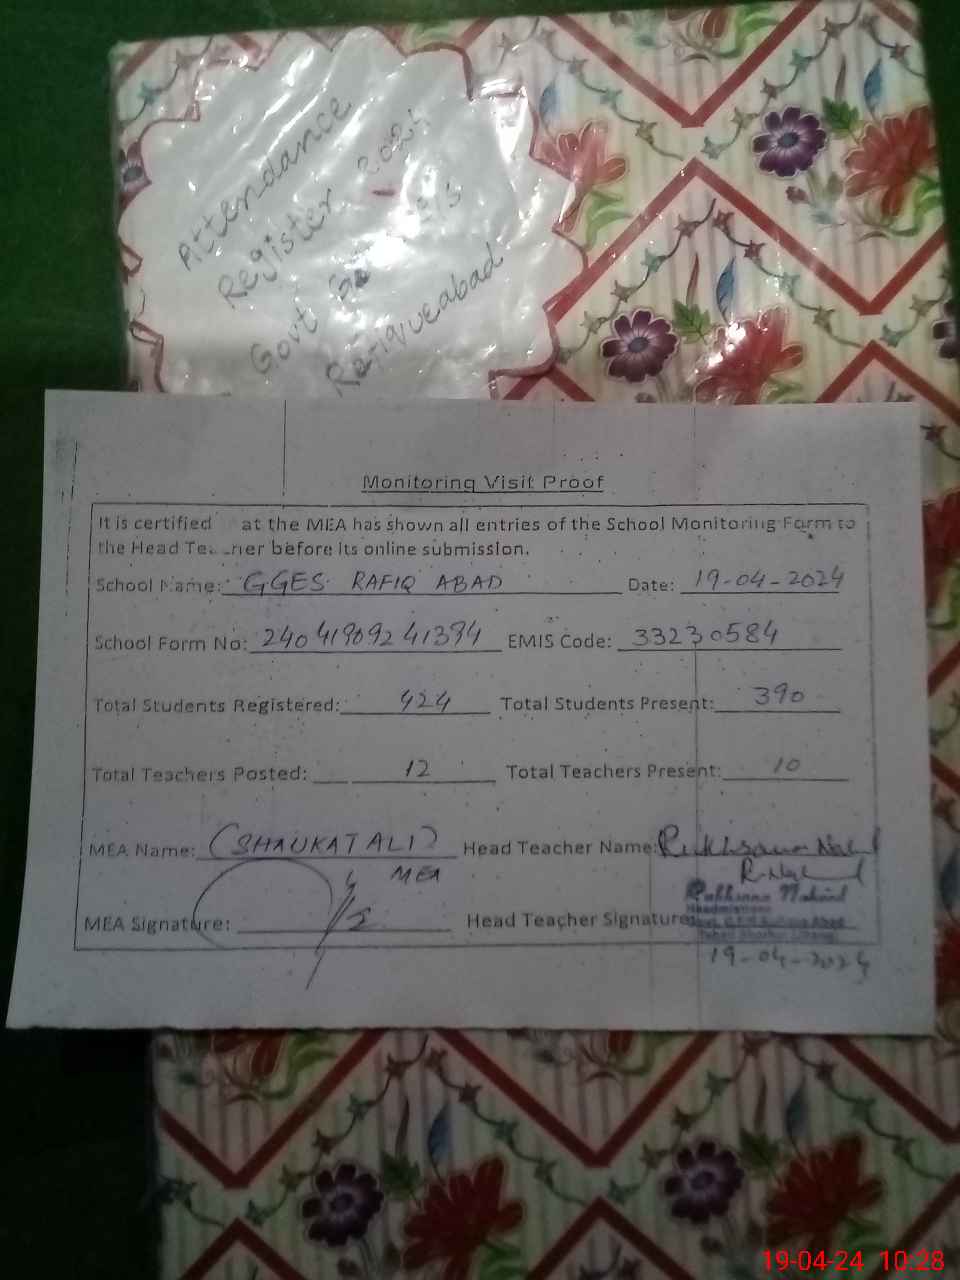 Attendance
Register 2024
Govt
Rafiqueabad
Monitoring Visit Proof
It is certified at the MEA has shown all entries of the School Monitoring Form to
the Head Teacher before its online submission.
School Name: GGES RAFIQ ABAD Date: 19-04-2024
School Form No: EMIS Code: 33230584
Total Students Registered: 424 Total Students Present: 390
Total Teachers Posted: 12 Total Teachers Present: 10
MEA Name: (SHAUKAT ALI) Head Teacher Name: Rukhsana Nahid
MEA
Rukhsana Nahid
Headmistress
MEA Signature: Head Teacher Signature
19-04-2024
19-04-24 10:28